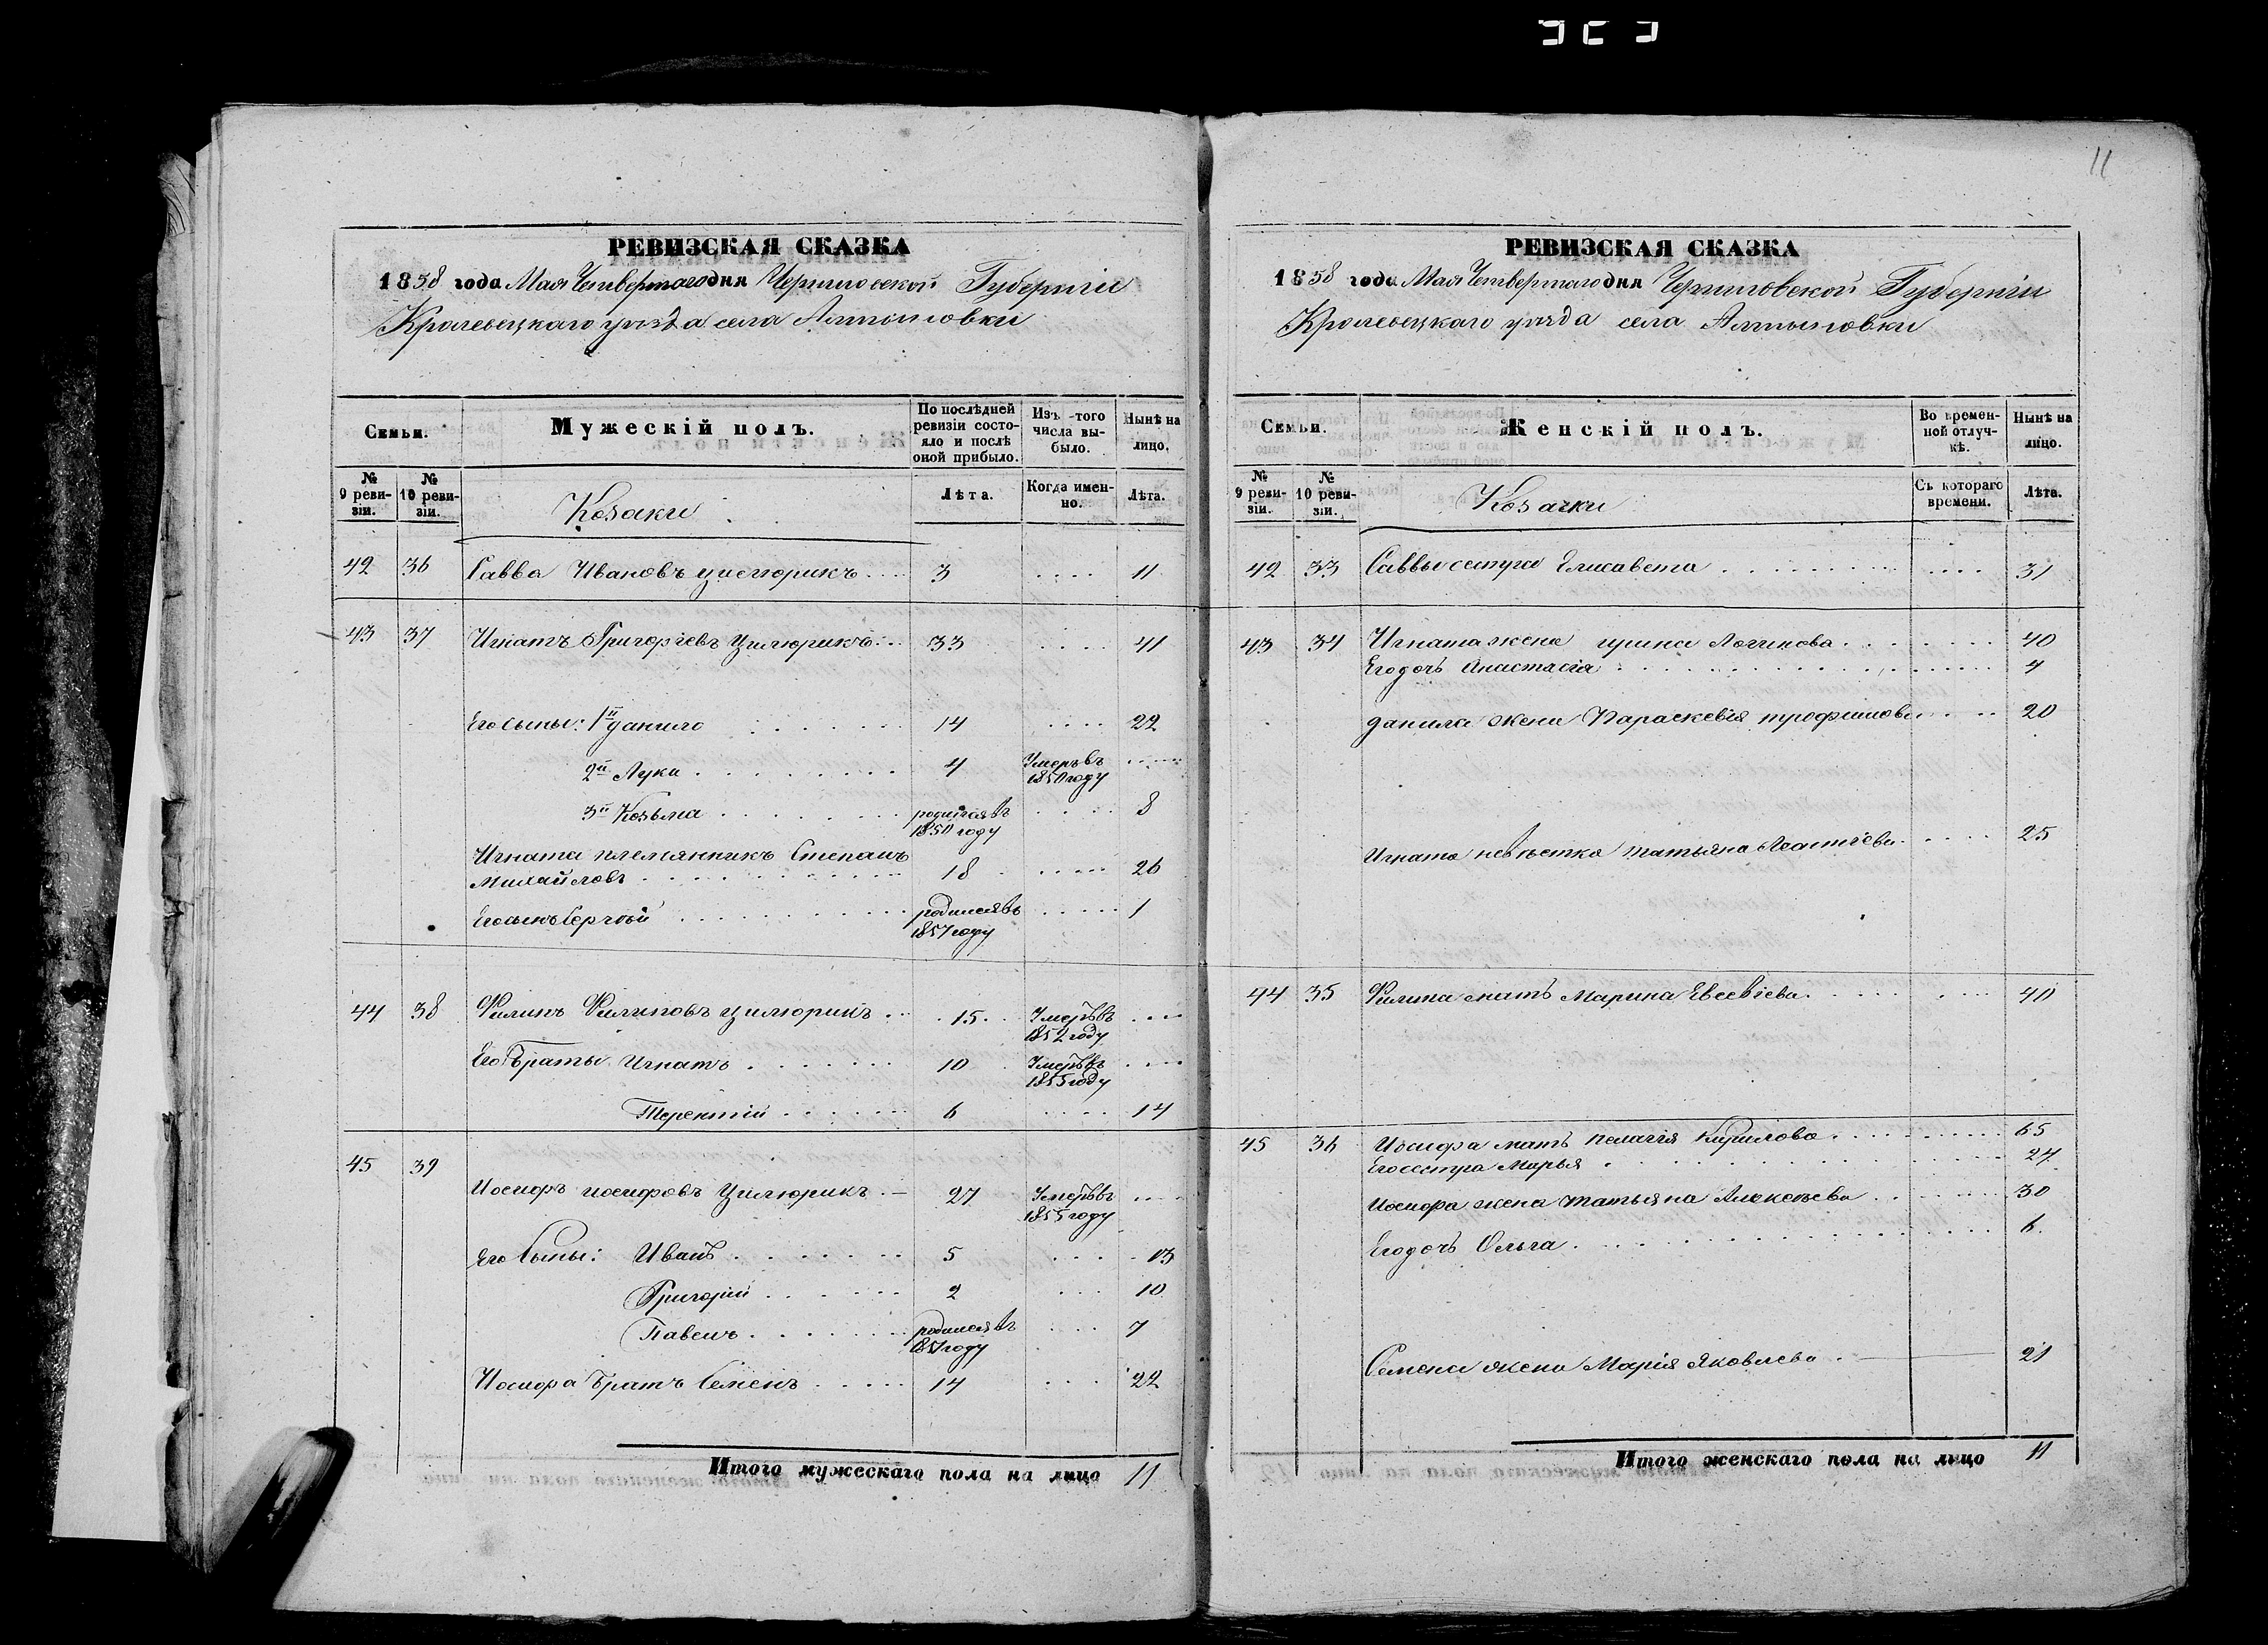 11
РЕВИЗСКАЯ СКАЗКА
1858 года Мая Четвертаго дня Черниговской Губерніи
Кролевецкаго уѣзда села Алтыновки
Семьи.
Мужескій полъ.
По послѣдней ревизіи состояло и послѣ оной прибыло.
Изъ -того числа выбыло.
Нынѣ на лицо.
№ 9 ревизіи.
№ 10 ревизіи.
Козаки
Лѣта.
Когда именно.
Лѣта.
42 36 Савва Ивановъ Цилюрикъ 3 11
43 37 Игнатъ Григорьевъ Цилюрикъ 33 41
Его сыны: 1й Данило 14 22
2й Лука 4 Умеръ въ 1850 году
3й Козьма родился въ 1850 году 8
Игната племянникъ Степанъ
Михайловъ 18 26
Его сынъ Сергѣй родился въ 1857 году 1
44 38 Филипъ Филиповъ Цилюрикъ 15 Умеръ въ 1852 году
Его Браты Игнатъ 10 Умеръ въ 1855 году
Терентій 6 14
45 39
Иосифъ Иосифовъ Цилюрикъ 27 Умеръ въ 1855 году
Его Сыны: Иванъ 5 13
Григорій 2 10
Павелъ родился въ 1851 году 7
Иосифа Братъ Семенъ 14 22
Итого мужескаго пола на лицо 11
РЕВИЗСКАЯ СКАЗКА
1858 года Мая Четвертаго дня Черниговской Губерніи
Кролевецкаго уѣзда села Алтыновки
Семьи.
Женскій полъ.
Во временной отлучкѣ.
Нынѣ на лицо.
№ 9 ревизіи.
№ 10 ревизіи.
Козачки
Съ котораго времени.
Лѣта.
42 33 Саввы сестра Елисавета 31
43 34 Игната жена Ирина Логинова 40
Его дочь Анастасія 4
Данила жена Параскевія Трофимова 20
Игната невѣстка Татьяна 25
44 35 Филипа мать Марина Евсевіева 40
45 36 Иосифа мать Пелагія Кирилова 65
Его сестра Марья 27
Иосифа жена Татьяна Алексѣева 30
Его дочь Ольга 6
Семена жена Марія Яковлева 21
Итого женскаго пола на лицо 11